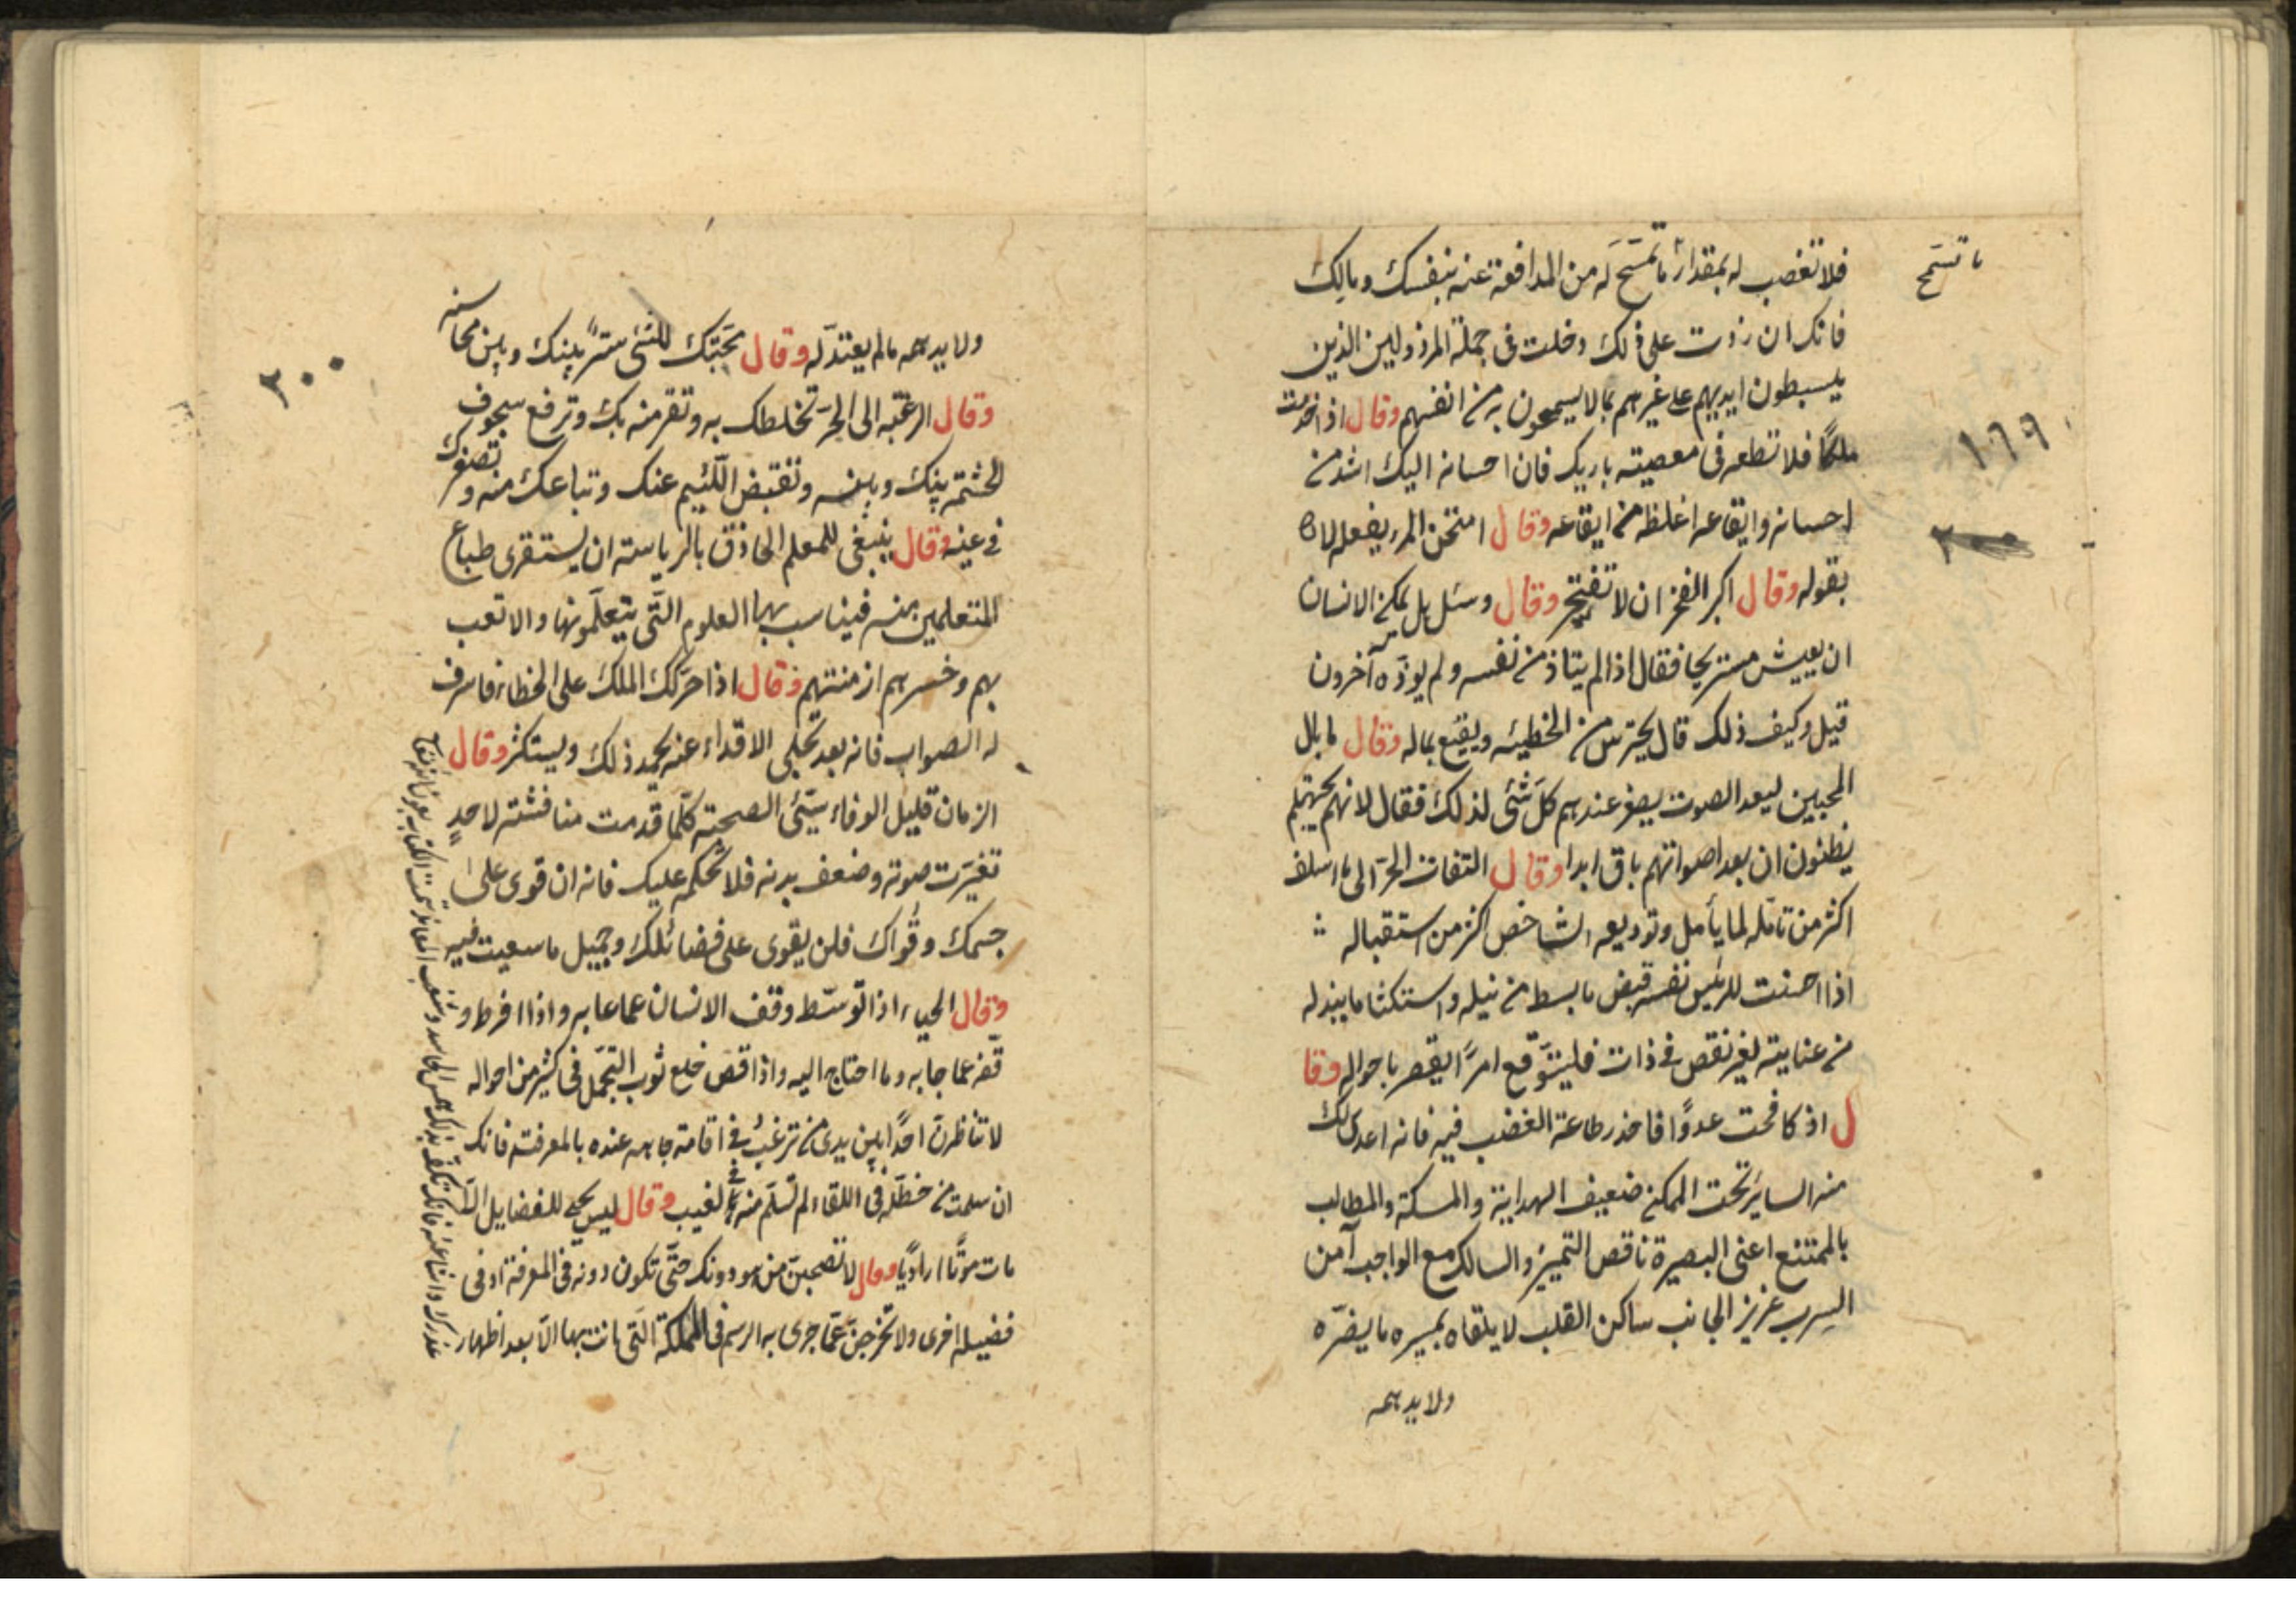 فلا تغضب له بمقدار ما تسمح له من المدافعة عنه بنفسك ومالك
ما تسمح
فانك ان زدت على ذلك دخلت فى جملة المرذولين الذين
يبسطون ايديهم على غيرهم بما لا يسمحون به من انفسهم وقال اذا خدمت
ملكًا فلا تطعه فى معصيته باريك فان احسانه اليك اشد من
١٩٩
احسانه وايقاعه اغلظ من ايقاعه وقال امتحن المرء بفعله لا
٢٠٠
بقوله وقال اكبر الفخر ان لا تفتخر وقال وسئل هل يمكن الانسان
ان يعيش مستريحا فقال اذا لم يتاذ من نفسه ولم يوذه آخرون
قيل وكيف ذلك قال يحترس من الخطيئه ويقنع بماله وقال ما بال
المحبين لبعد الصوت يصغر عندهم كل شئ لذلك فقال لانهم
يظنون ان بعد اصواتهم باق ابدا وقال التفات الحر الى ما اسلف
اكثر من تامّله لما يأمل وتوديعه الشاخص اكثر من استقباله
اذا احسنت للرئيس نفسه قبض ما بسط من نيله واستكثر ما يبذله
من عنايته لغير نقص فى ذات فليتوقع امرًا يقصر باحواله وقا
ل اذ كافحت عدوًا فاحذر طاعة الغضب فيه فانه اعدى لك
منه السائر تحت الممكن ضعيف الهداية والمسكة والمطالب
بالممتنع اعنى البصيرة ناقص التمييز والسالك مع الواجب آمن
السرب عزيز الجانب ساكن القلب لا يلقاه بمسيره ما يضرّه
ولا يدهمه
٢٠٠
ولا يدهمه ما لم يعتد له وقال محبّتك للشئ سترٌ بينك وبين محاسنه
وقال الرغبه الى الحرّ تخلطك به وتقرمنه بك وترفع سجوف
الحشمة بينك وبينه وتقبض اللئيم عنك وتباعدك منه وتصغرك
فى عينه وقال ينبغى للمعلم الحاذق بالرياسته ان يستقرى طباع
المتعلمين منه فيناسب بها العلوم التى يتعلمونها والا تعب
بهم وخسرهم ازمنتهم وقال اذا حرّكك الملك على الخطاء فاصرف
له الصواب فانه بعد تجلى الاقذاء عنه يحمد ذلك ويستكثر وقال
الزمان قليل الوفاء سيّئ الصحبة كلما قدمت منافسته لاحدٍ
تغيّرت صوته وضعف بدنه فلا تحكمه عليك فانه ان قوى على
جسمك وقواك فلن يقوى على فضائلك وجميل ما سعيت فيه
وقال الحياء اذا توسّط وقف الانسان عما عابه واذا افرط و
قّفه عما جابه وما احتاج اليه واذا قصّر خلع ثوب التجمّل فى كثير من احواله
لا تناظرن احدًا بين يدى من ترغب فى اقامة جاهه عنده بالمعرفة فانك
ان سلمت من خطله فى اللقاء لم تسلم منه فى الغيب وقال ليس يحيى للفضايل الا من
مات موتًا اراديًا وقال لا تصحبنّ من هو دونك حتّى تكون دونه فى المعرفة او فى
فضيله اخرى ولا تخرجنّ عمّا جرى به الرسم فى المملكة التى انت بها الا بعد اظهار